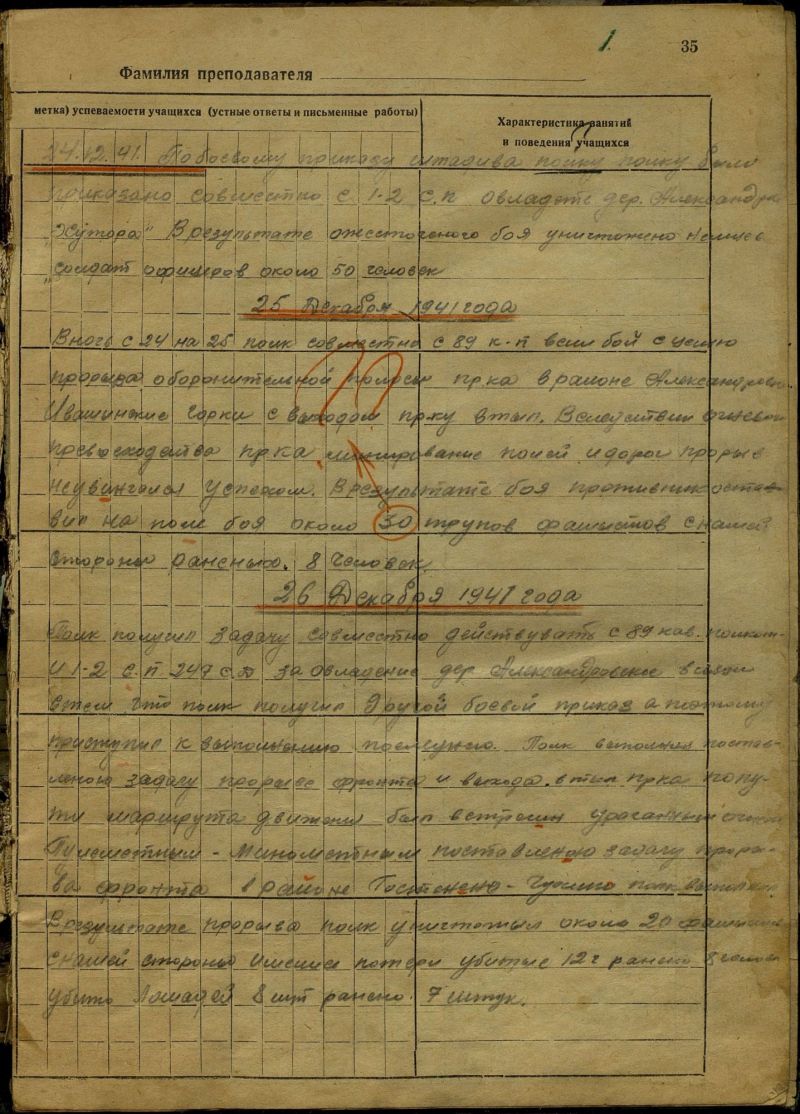 1.
35
Фамилия преподавателя
метка) успеваемости учащихся (устные ответы и письменные работы)
Характеристика занятий
и поведения учащихся
24.12.41. По боевому приказу штадива полку полку было
приказано совместно с 1-2 с.п овладеть дер. Александров
"Хутора" В результате ожесточеного боя уничтожено немцев
солдат офицеров около 50 человек
25 Декабря 1941 года
В ночь с 24 на 25 полк совместно с 89 к.п вели бой с целью
прорыва оборонительной полосы пр-ка в районе Александровка
Ивашинские горки с выходом пр-ку в тыл. Вследствии огневого
превосходства пр-ка минирование полей и дорог прорыв
неувинчался успехом. В результате боя противник оста-
вил на поле боя около 30 трупов фашистов с нашей
стороны раненых. 8 человек.
26 Декабря 1941 года
Полк получил задачу совместно действувать с 89 кав. полком
и 1-2 с.п 247 с.д за овладение дер Александровское в связи
стем что полк получил другой боевой приказ а поэтому
приступил к выполнению последнего. Полк выполняя постав-
леною задачу прорыве фронта и выхода в тыл пр-ка по пу-
ти маршрута движения был встречен ураганным огнем
Пулеметным - Минометным поставленою задачу проры-
ва фронта в районе полк выполнил
Врезультате прорыва полк уничтожил около 20 фашистов
с нашей стороны имелись потери убитые 12 ч ранено 8 человек
убито лошадей 8 шт ранено. 7 штук.